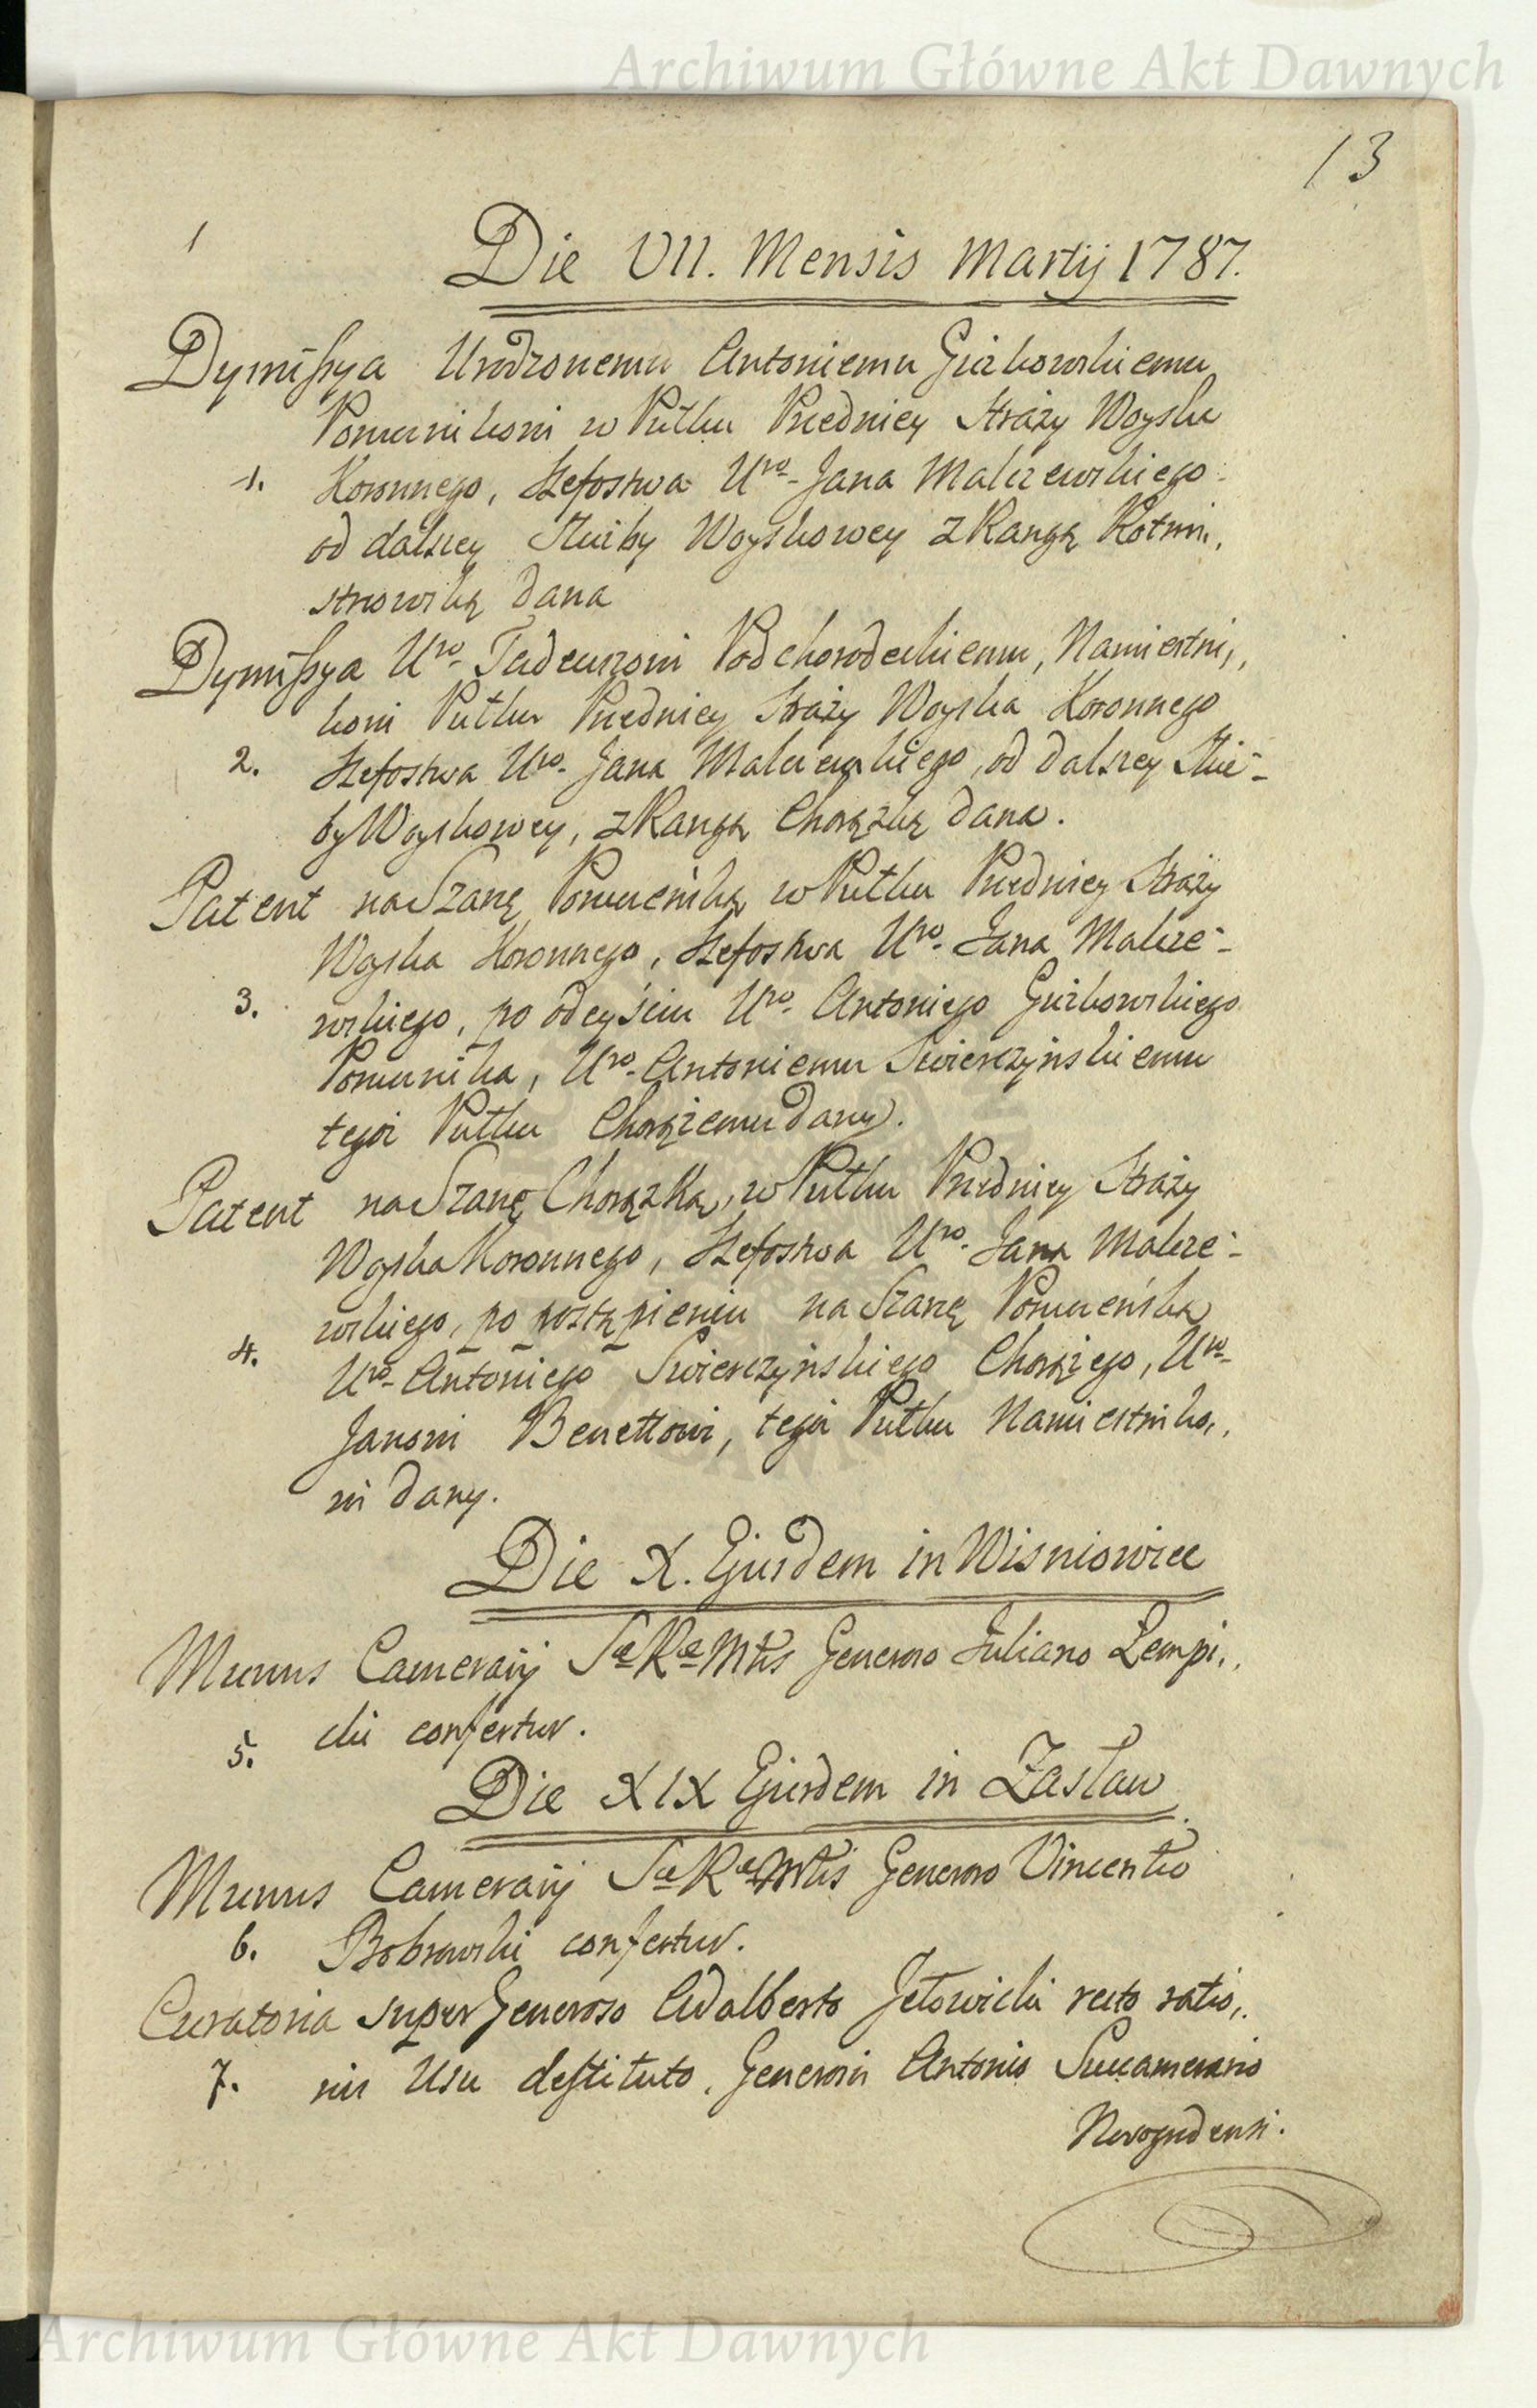 Archiwum Główne Akt Dawnych
13
1
Die VII. Mensis Martij 1787.
Dymissya Urodzonemu Antoniemu Giżkowskiemu
Porucznikowi w Pułku Przedniey Straży Woyska
1. Koronnego, Szefostwa Uro. Jana Malczewskiego
od dalszey Służby Woyskowey z Rangą Rotmi,,
strzowską dana
Dymissya Uro. Tadeuszowi Podchorodeckiemu, Namiestni,,
kowi Pułku Przedniey Straży Woyska Koronnego
2. Szefostwa Uro. Jana Malczewskiego, od dalszey Służ-
by Woyskowey, z Rangą Chorążką dana.
Patent na Szarżę Poruczniką w Pułku Przedniey Straży
Woyska Koronnego, Szefostwa Uro. Jana Malcze-
3. wskiego, po odeyściu Uro. Antoniego Giżkowskiego
Porucznika, Uro. Antoniemu Swierczyńskiemu
tegoż Pułku Chorążemu dany.
Patent na Szarżę Chorążką, w Pułku Przedniey Straży
Woyska Koronnego, Szefostwa Uro. Jana Malcze-
wskiego, po postąpieniu na Szarżę Porucznską
4. Uro. Antoniego Swierczyńskiego Chorążego, Uro.
Janowi Benettowi, tegoż Pułku Namiestniko,,
wi dany.
Die X. Ejusdem in Wisniowiec
Munus Camerarij Sæ Ræ Mtis Generoso Juliano Łempi,,
5. cki confertur.
Die XIX Ejusdem in Zasław
Munus Camerarij Sæ Ræ Mtis Generoso Vincentio
6. Bobrowski confertur.
Curatoria super Generoso Adalberto Jełowicki recto ratio,,
7. nis Usu destituto, Generosi Antonio Succamerario
Novogrodensi.
Archiwum Główne Akt Dawnych